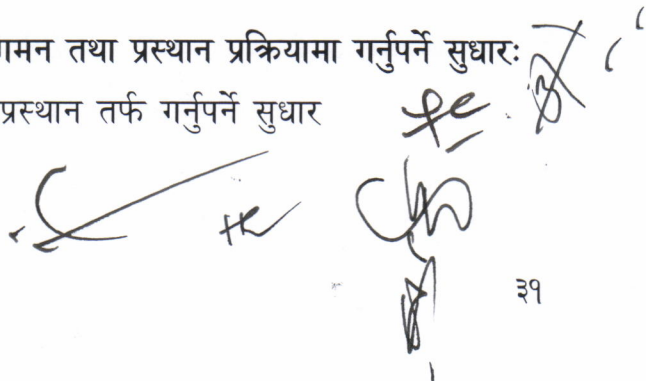 गमन तथा प्रस्थान प्रक्रियामा गर्नुपर्ने सुधारः
प्रस्थान तर्फ गर्नुपर्ने सुधार
३१